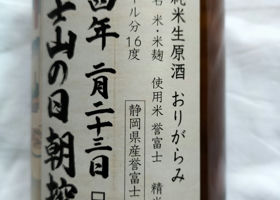 純米生原酒 おりがらみ
米・米麹 使用米 誉富士 精米
ル分16度
静岡県産誉富士
年 二月二十三日
士山の日 朝搾